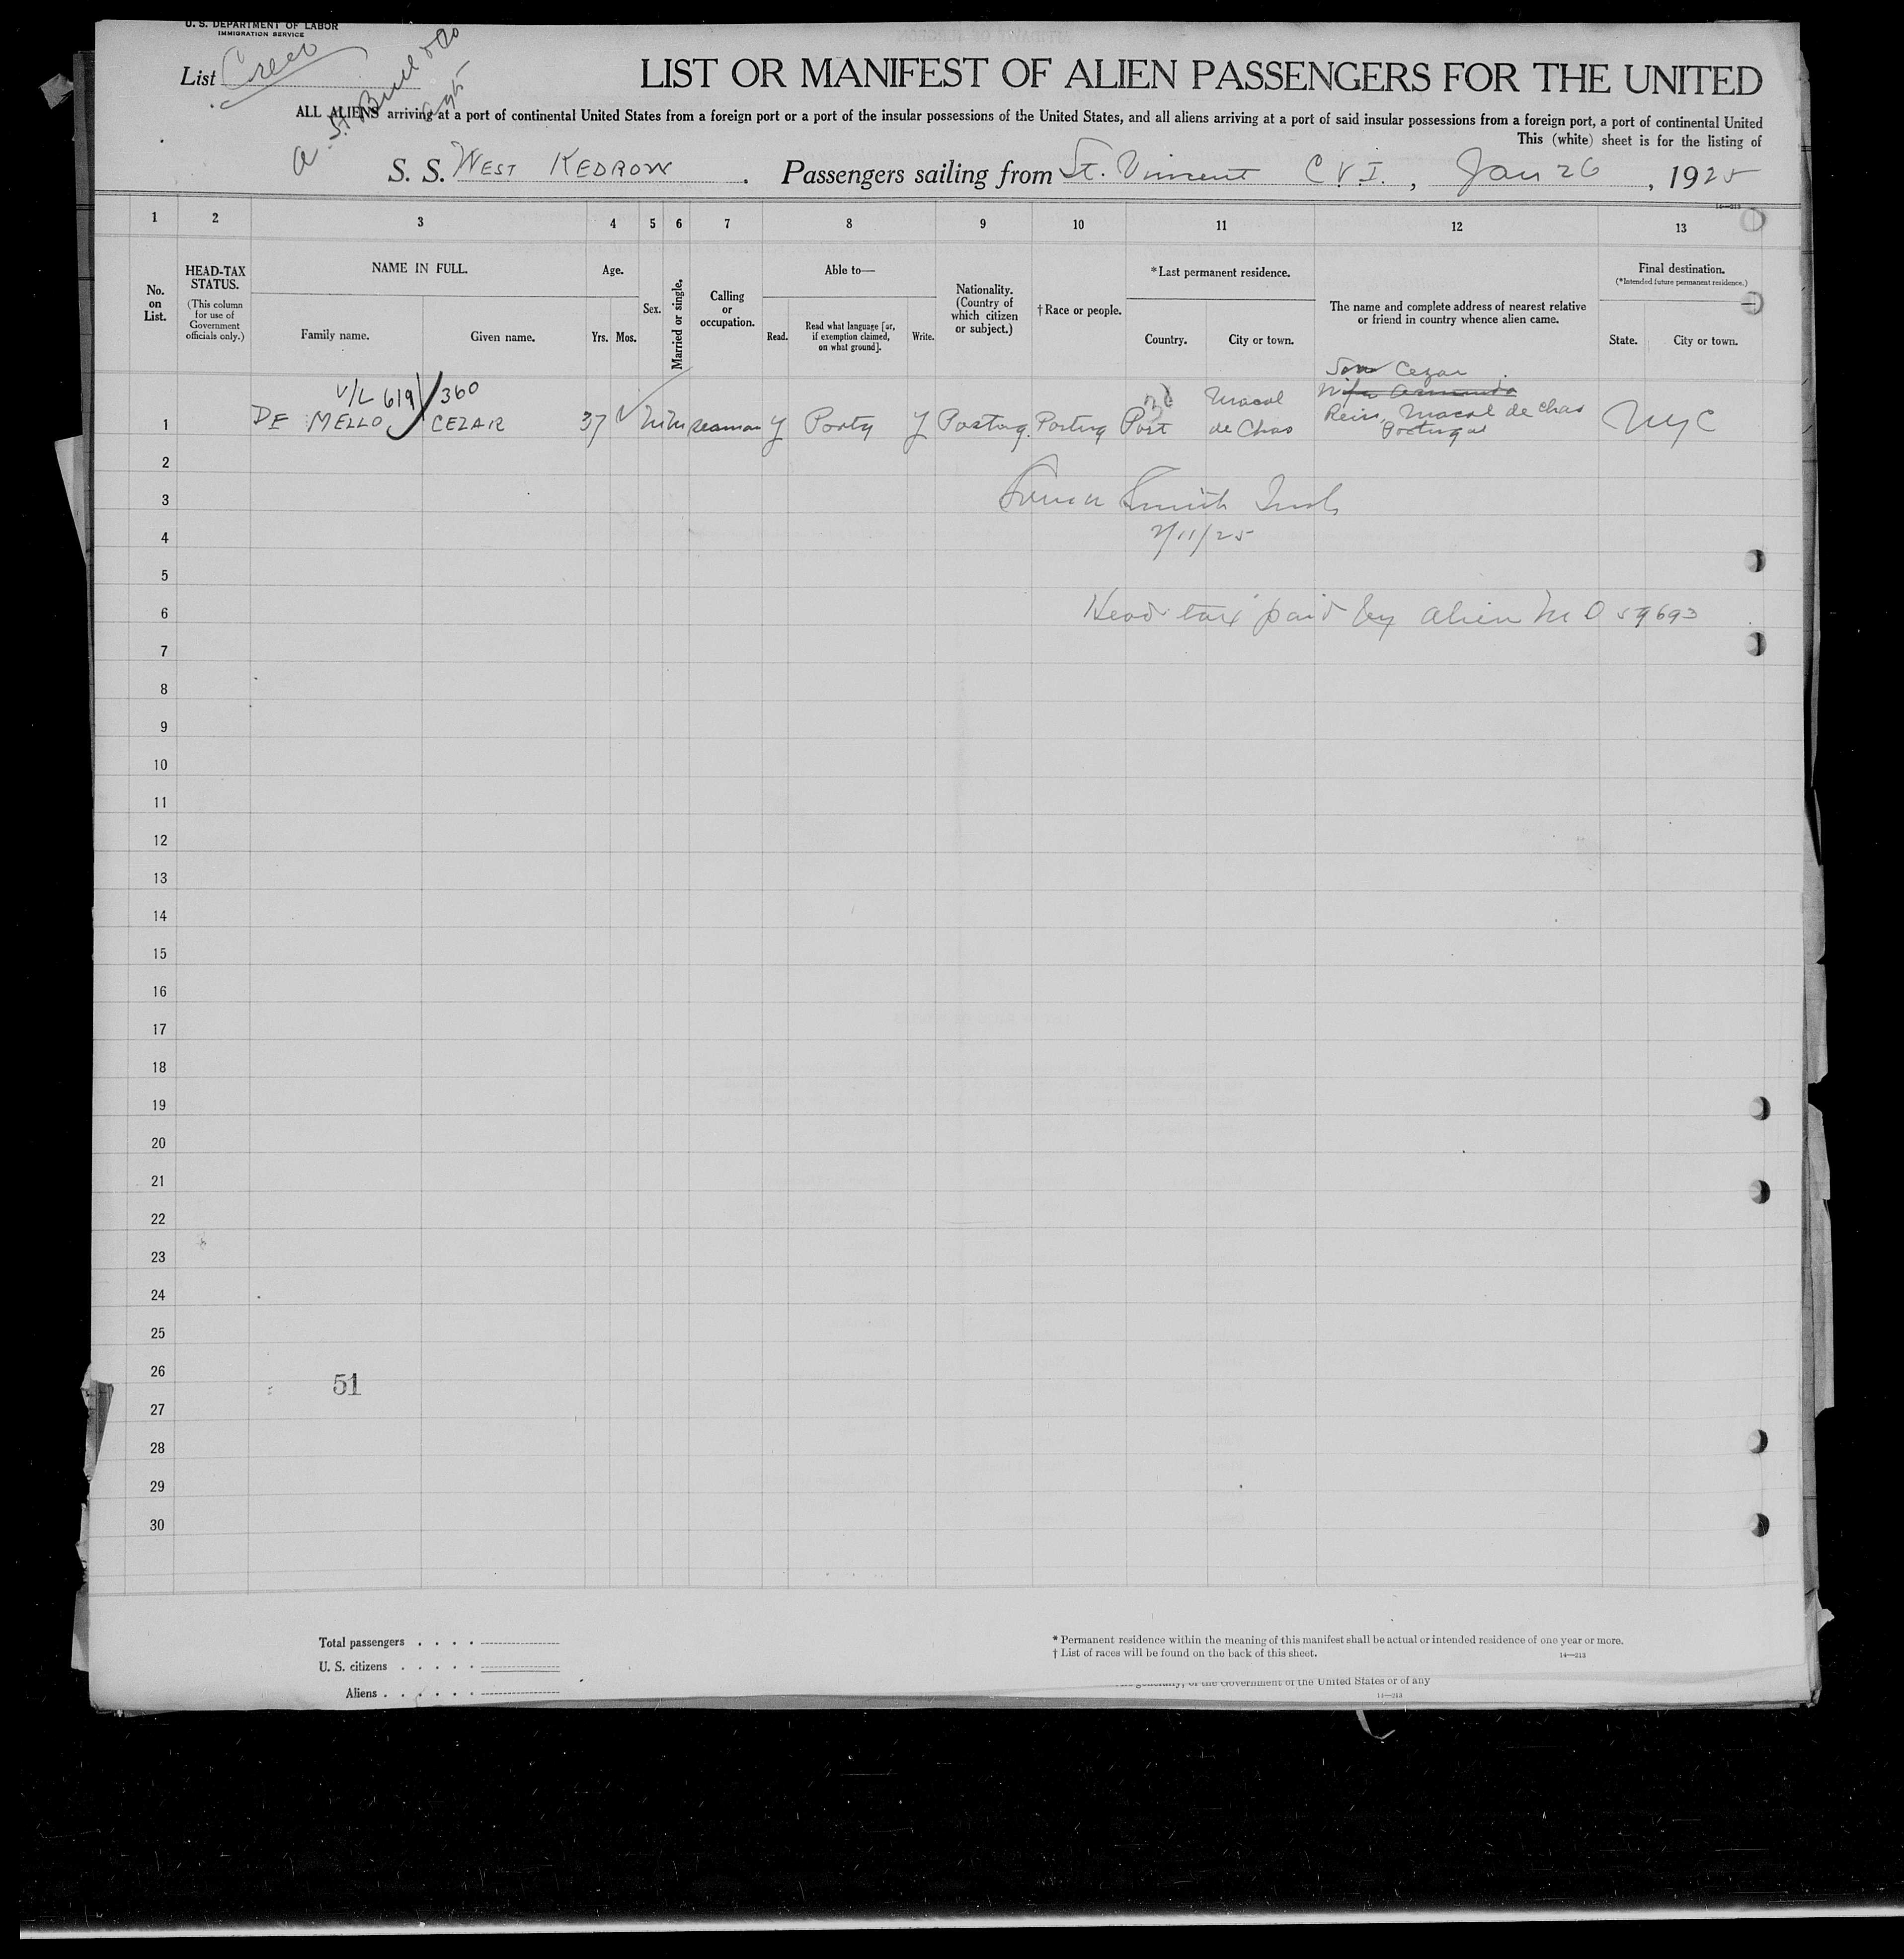 U. S. DEPARTMENT OF LABOR
IMMIGRATION SERVICE
List Crew
A. H. Bull & Co
Agts
LIST OR MANIFEST OF ALIEN PASSENGERS FOR THE UNITED
ALL ALIENS arriving at a port of continental United States from a foreign port or a port of the insular possessions of the United States, and all aliens arriving at a port of said insular possessions from a foreign port, a port of continental United
This (white) sheet is for the listing of
S. S. WEST KEDRON. Passengers sailing from St. Vincent C V I., Jan 26, 1925
14—213
1 2 3 4 5 6 7 8 9 10 11 12 13
No. on List.
HEAD-TAX STATUS.
(This column for use of Government officials only.)
NAME IN FULL.
Family name.
Given name.
Age.
Yrs. Mos.
Sex.
Married or single.
Calling or occupation.
Able to—
Read.
Read what language [or, if exemption claimed, on what ground].
Write.
Nationality. (Country of which citizen or subject.)
†Race or people.
*Last permanent residence.
Country.
City or town.
The name and complete address of nearest relative or friend in country whence alien came.
Final destination.
(*Intended future permanent residence.)
State.
City or town.
V/L 619/360
Son Cezar
1 DE MELLO CEZAR 37 M M seaman Y Portg Y Portug. Portug Port Macal de Chao
Reis, Macal de Chao
Portugal
NYC
2
3
Smith Insp
4
2/11/25
5
6
Head tax paid by alien M O 59693
7
8
9
10
11
12
13
14
15
16
17
18
19
20
21
22
23
24
25
26
51
27
28
29
30
Total passengers . . . .
U. S. citizens . . . . .
Aliens . . . . . .
* Permanent residence within the meaning of this manifest shall be actual or intended residence of one year or more.
† List of races will be found on the back of this sheet.
14—213
of the Government of the United States or of any
14—213